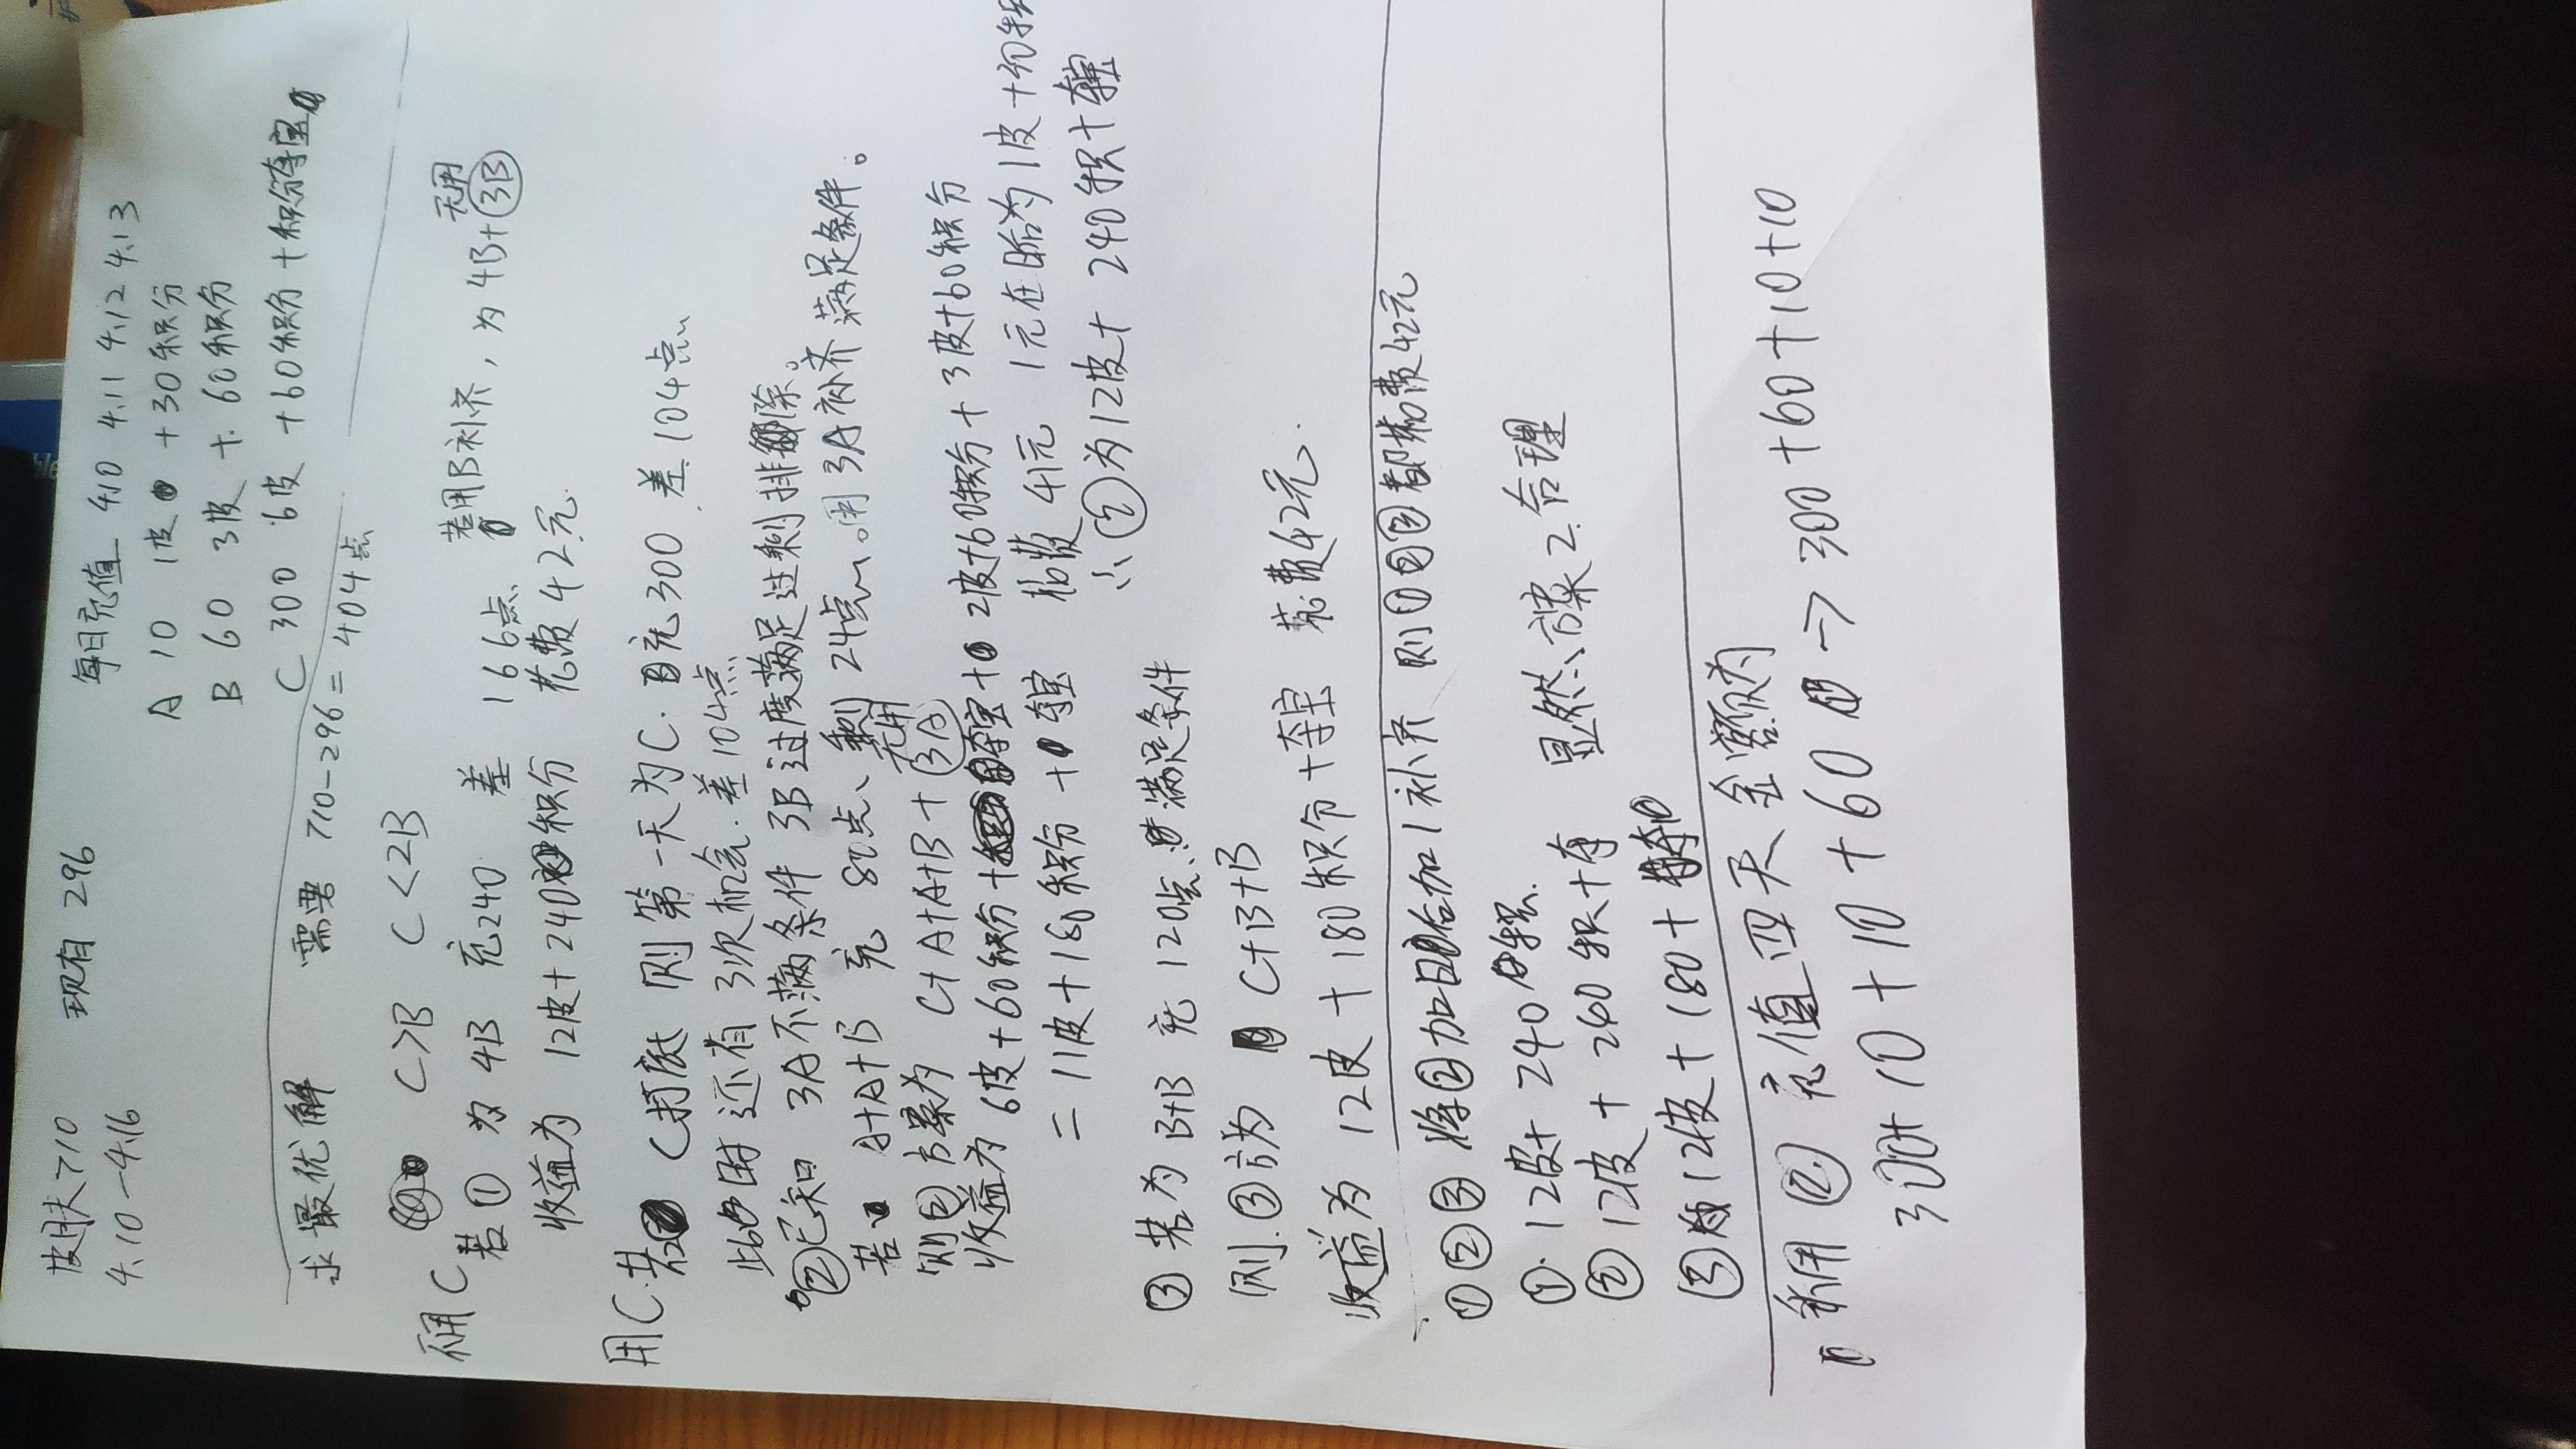 皮肤710 现有296 每日充值 4.10 4.11 4.12 4.13
4.10-4.16 A 10 1皮 +30积分
B 60 3皮 + 60积分
求最优解 需要 710-296=404点 C 300 6皮 +60积分+积分夺宝
C>B C<2B
不用C
若①为 4B 充240 差 166点 若用B补齐,为4B+3B 无用
收益为 12皮+240积分 花费42元
用C.若 C打底 则第一天为C.充300.差104点
此时还有3次机会.差104点
②已知 3A不满条件 3B过度满足过剩排除。
若 A+A+B 充 80点、剩24点 用3A补齐满足条件。
则②方案为 C+A+A+B+3A 无用
收益为 6皮+60积分+夺宝+2皮+60积分+3皮+60积分
=11皮+180积分+夺宝 花费41元 1元在后为1皮+30积
∴②为12皮+240积+夺宝
③若为B+B 充120点.满足条件
则.③方为 C+B+B
收益为 12皮+180积分+夺宝 花费42元.
①②③ 将②加后加1补齐 则①②③都花费42元
①.12皮+240积.
②12皮+260积+夺 显然、方案2.合理
③为12皮+180+夺
利用②充值四天金额为
300+10+10+60 → 300+60+10+10